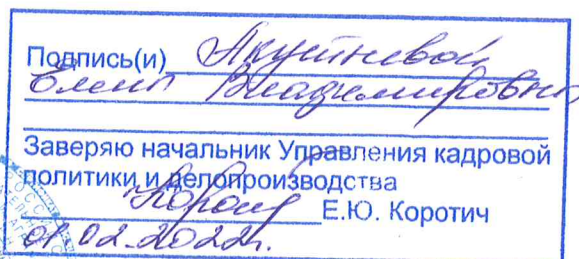 Подпись(и) Якушневой
Елены Владимировны
Заверяю начальник Управления кадровой
политики и делопроизводства
Е.Ю. Коротич
01.02.2022г.